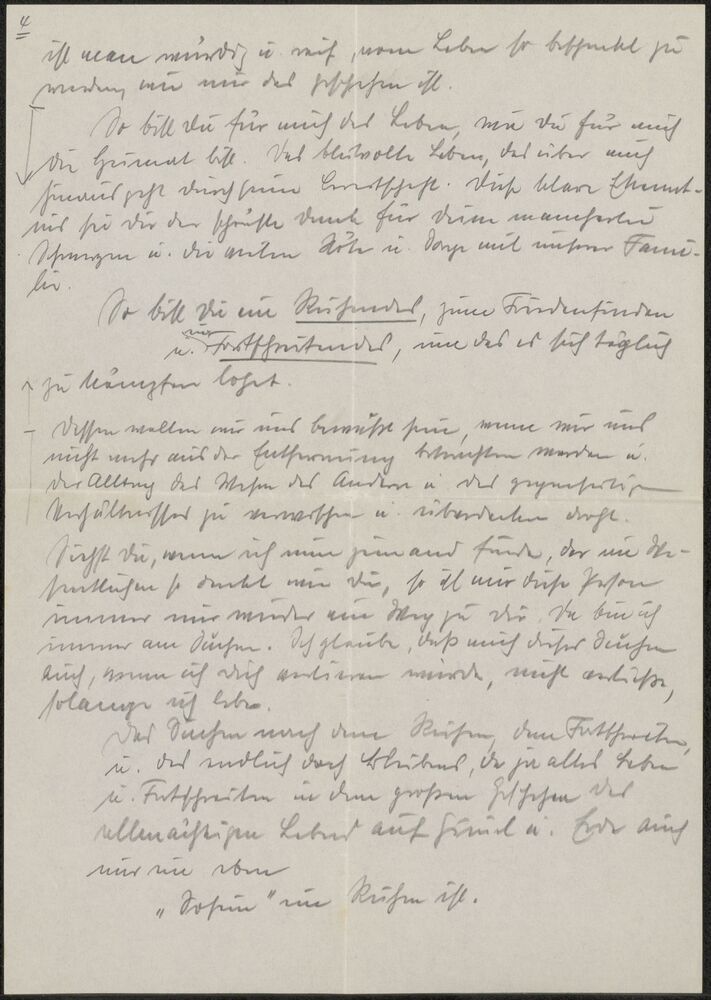 4
ist man würdig u. reif, vom Leben so beschenkt zu
werden, wie mir das geschehen ist.
So bist Du für mich das Leben, wie Du für mich
die Heimat bist. Das blutvolle Leben, das über mich
hinaus geht durch seine Bereitschaft. Diese klare Erkennt-
nis sei Dir der schönste Dank für Deine mancherlei
Schmerzen u. die vielen Nöte u. Sorge mit unserer Fami-
lie.
So bist Du ein Ruhendes, zum Friedenfinden
u. ein Fortschreitendes, um das es sich täglich
zu kämpfen lohnt.
Dessen wollen wir uns bewußt sein, wenn wir uns
nicht mehr aus der Entfernung betrachten werden u.
der Alltag das Wesen des Andern u. des gegenseitigen
Verhältnisses zu verwischen u. überdecken droht.
Siehst Du, wenn ich nun jemand finde, der im We-
sentlichen so denkt wie Du, so ist mir diese Person
immer nur wieder ein Weg zu Dir. Da bin ich
immer am Suchen. Ich glaube, daß mich dieses Suchen
auch, wenn ich Dich verlieren würde, nicht verließe,
solange ich lebe.
Das Suchen nach dem Ruhen, dem Fortschreiten,
u. des endlich doch Bleibens, da ja alles Leben
u. Fortschreiten in dem großen Geschehen des
allmächtigen Lebens auf Himmel u. Erde auch
nur ein eben
"Dasein" im Ruhen ist.